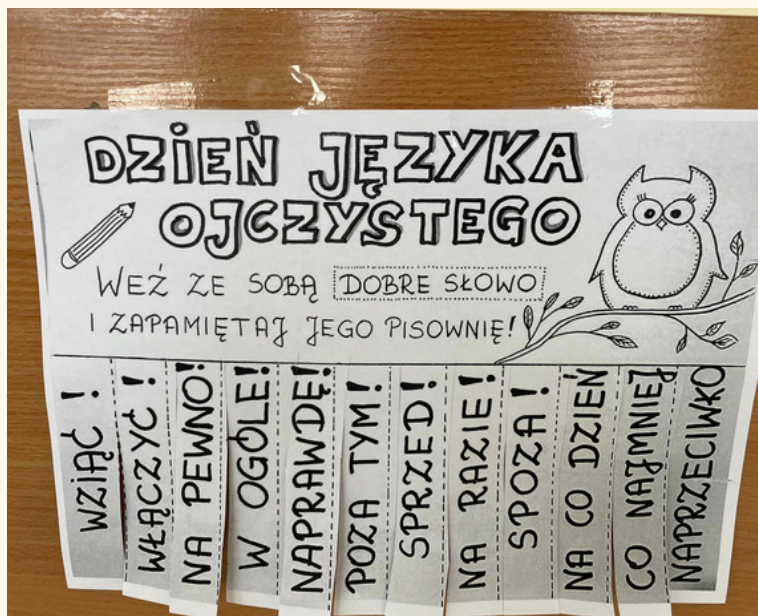 DZIEŃ JĘZYKA
OJCZYSTEGO
WEŹ ZE SOBĄ DOBRE SŁOWO
I ZAPAMIĘTAJ JEGO PISOWNIĘ!
WZIĄĆ!
WŁĄCZYĆ!
NA PEWNO!
W OGÓLE!
NAPRAWDĘ!
POZA TYM!
SPRZED!
NA RAZIE!
SPOZA!
NA CO DZIEŃ
CO NAJMNIEJ
NAPRZECIWKO